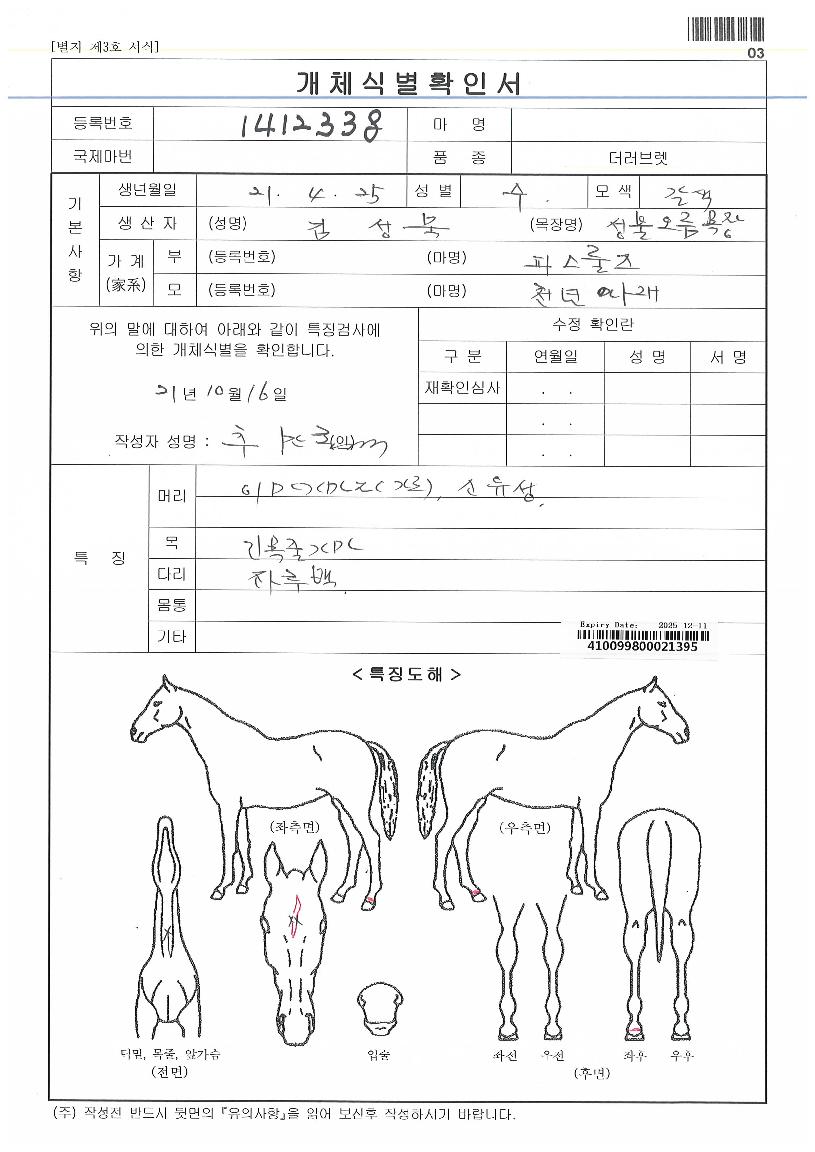 [별지 제3호 서식]
03
개체식별확인서
등록번호 1412338 마 명
국제마번 품 종 더러브렛
기본사항
생년월일 21. 4. 25 성별 수. 모색 갈색
생산자 (성명) 김성묵 (목장명) 성불오름목장
가계(家系) 부 (등록번호) (마명) 피스룰즈
모 (등록번호) (마명) 천년아래
위의 말에 대하여 아래와 같이 특징검사에
의한 개체식별을 확인합니다.
21년 10월 16일
작성자 성명 : (인)
수정 확인란
구분 연월일 성명 서명
재확인심사 . .
. .
. .
특 징
머리
목
다리 좌후백
몸통
기타
Expiry Date: 2025-12-11
410099800021395
< 특징도해 >
(좌측면) (우측면)
턱밑, 목줄, 앞가슴
(전면)
입술
좌전 우전 좌후 우후
(후면)
(주) 작성전 반드시 뒷면의 『유의사항』을 읽어 보신후 작성하시기 바랍니다.